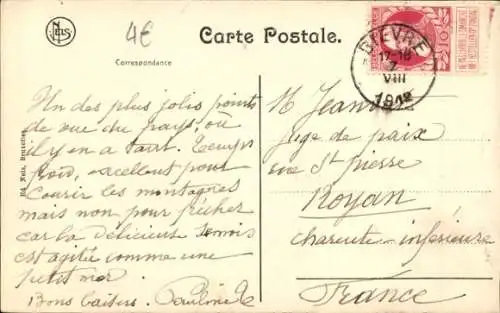 NELS
4€
Carte Postale.
Correspondance
Ed. Nels, Bruxelles
BIEVRE
12-18
7
VIII
1912
10
Un des plus jolis points
de vue du pays, où
il y en a tant. Temps
froid, excellent pour
courir les montagnes
mais non pour pêcher
car la délicieuse Semois
est agitée comme une
petite mer
Bons baisers.
M Jean
Juge de paix
rue St Pierre
Royan
Charente-inférieure
France